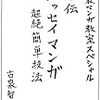 マンガ教室スペシャル
伝
ッセイマンガ
超絶簡単技法
古泉智